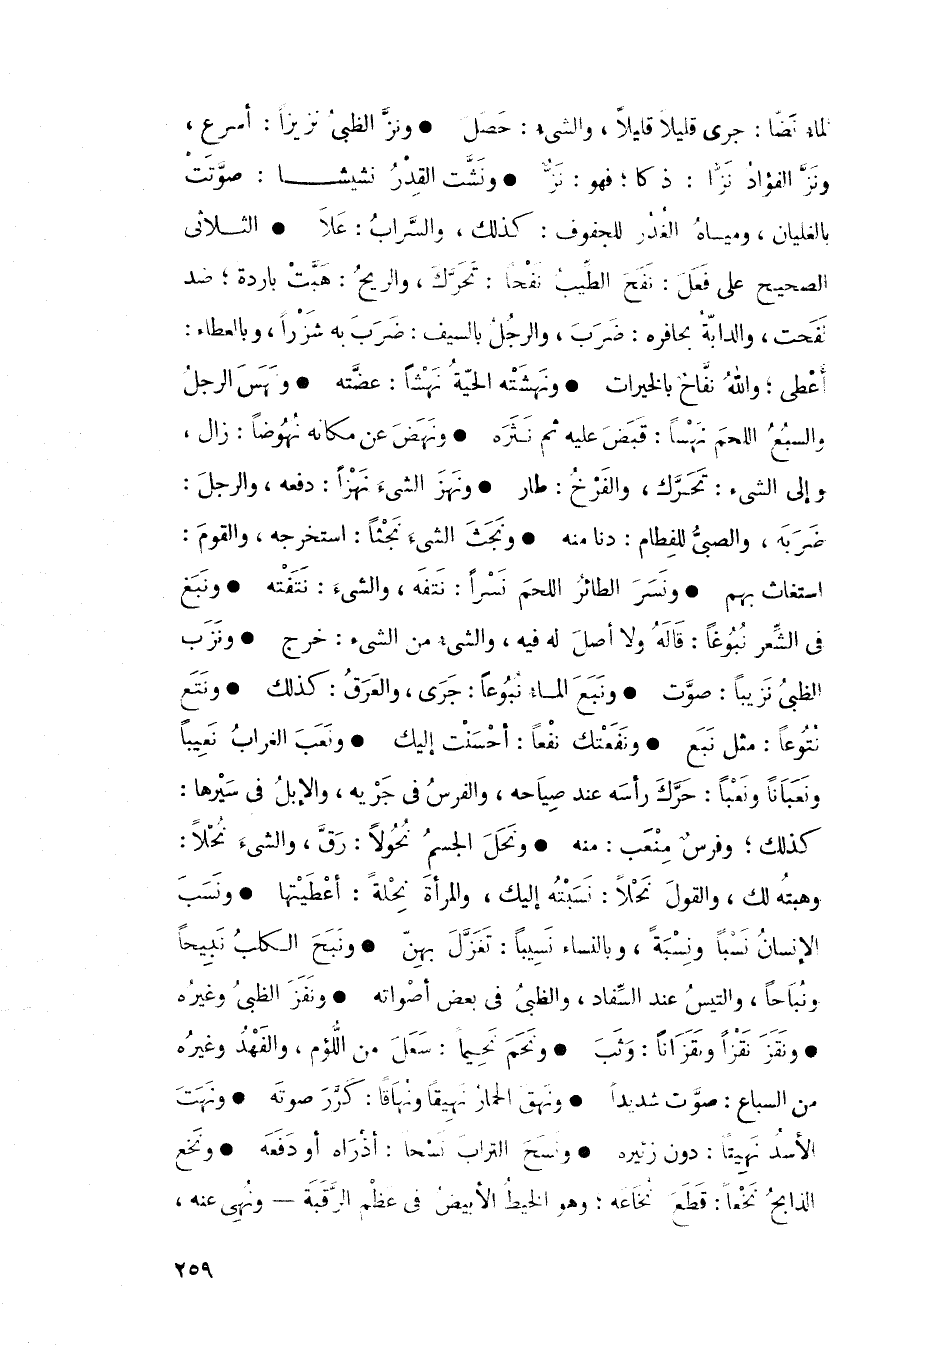 الماءُ نَضًّا : جرى قليلاً قليلاً ، والشىءُ : حَصَلَ ● ونزَّ الظبىُ نَزِيزاً : أسرع ،
ونَزَّ الفؤادُ نَزًّا : ذكا ؛ فهو : نَزٌّ ● ونَشَّت القِدْرُ نشيشـــا : صوَّتَتْ
بالغليان ، وميـاهُ الغُدُرِ للجفوف : كذلك ، والسَّرابُ : عَلاَ ● الثــلاثى
الصحيح على فَعَلَ : نَفَحَ الطِّيبُ نَفْحاً : تحَرَّكَ ، والريحُ : هَبَّتْ باردة ؛ ضد
نَفَحت ، والدابّةُ بحافره : ضَرَبَ ، والرجُلُ بالسيف : ضَرَبَ به شَزْراً ، وبالعطاء :
أَعْطى ؛ واللهُ نفَّاحٌ بالخيرات ● ونَهِشَتْه الحيّةُ نَهْشاً : عضَّته ● ونَهَسَ الرجلُ
والسبُعُ اللحمَ نَهْساً : قَبَضَ عليه ثم نَـثَرَه ● ونَهَضَ عن مكانه نُهُوضاً : زال ،
وإلى الشىء : تَحَـرَّك ، والفَرْخُ : طار ● ونَهَزَ الشىءَ نَهْزاً : دفعه ، والرجلَ :
ضَرَبَه ، والصبىُّ للفِطام : دنا منه ● ونَجَثَ الشىءَ نَجْثاً : استخرجه ، والقومَ :
استغاث بهم ● ونَسَرَ الطائرُ اللحمَ نَسْراً : نَتفَه ، والشىءَ : نَتَفْته ● ونَبَغ
فى الشِّعر نُبُوغاً : قَالَهُ ولا أصلَ له فيه ، والشىءُ من الشىء : خرج ● ونَزَب
الظبىُ نَزيباً : صوَّت ● ونَبَعَ المـاءُ نُبُوعاً : جَرَى ، والعَرَقُ : كَذلك ● ونَتَع
نُتُوعاً : مثل نَبَع ● ونَفَعْتك نفْعاً : أحْسَنْت إليك ● ونَعَبَ الغرابُ نَعِيباً
ونَعَبَاناً ونَعْباً : حَرَّكَ رأسَه عند صِيَاحه ، والفرسُ فى جَرْيه ، والإبلُ فى سَيْرها :
كذلك ؛ وفرسٌ مِنْعَب : منه ● ونَحَلَ الجسمُ نُحُولاً : رَقَّ ، والشىءَ نُحْلاً :
وهبتُه لك ، والقولَ نَحْلاً : نَسَبْتُه إليك ، والمرأةَ نِحْلةً : أعْطَيْتها ● ونَسَبَ
الإنسانُ نَسْباً ونِسْبَةً ، وبالنساء نَسِيباً : تَغَزَّلَ بهنّ ● ونَبَحَ الـكلبُ نَبِيحاً
ونُبَاحاً ، والتيسُ عند السِّفاد ، والظبىُ فى بعض أصْواته ● ونَفَزَ الظبىُ وغيرُه
● ونَقَزَ نَقْزاً ونَقَزَاناً : وَثَبَ ● ونَحَمَ نَحِيماً : سَعَلَ من اللُّؤم ، والفَهْدُ وغيرُه
من السباع : صوَّت شديداً ● ونَهقَ الحمارُ نَهِيقاً ونُهَاقاً : كَرَّرَ صوتَه ● ونَهَتَ
الأسدُ نَهِيتاً : دون زئيره ● ونَسَحَ الترابَ نَسْحاً : أذْرَاه أو دَفَعَه ● ونَخَع
الذابحُ نَخْعاً : قَطَعَ نُخَاعَه ؛ وهو الخيطُ الأبيضُ فى عَظْمِ الرَّقَبَة — ونُهِى عنه ،
٢٥٩